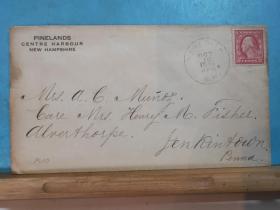 PINELANDS
CENTRE HARBOUR
NEW HAMPSHIRE
Mrs. A. C. Muñoz,
Care Mrs. Henry M. Fisher,
Alverthorpe,
Jenkintown,
Penna.